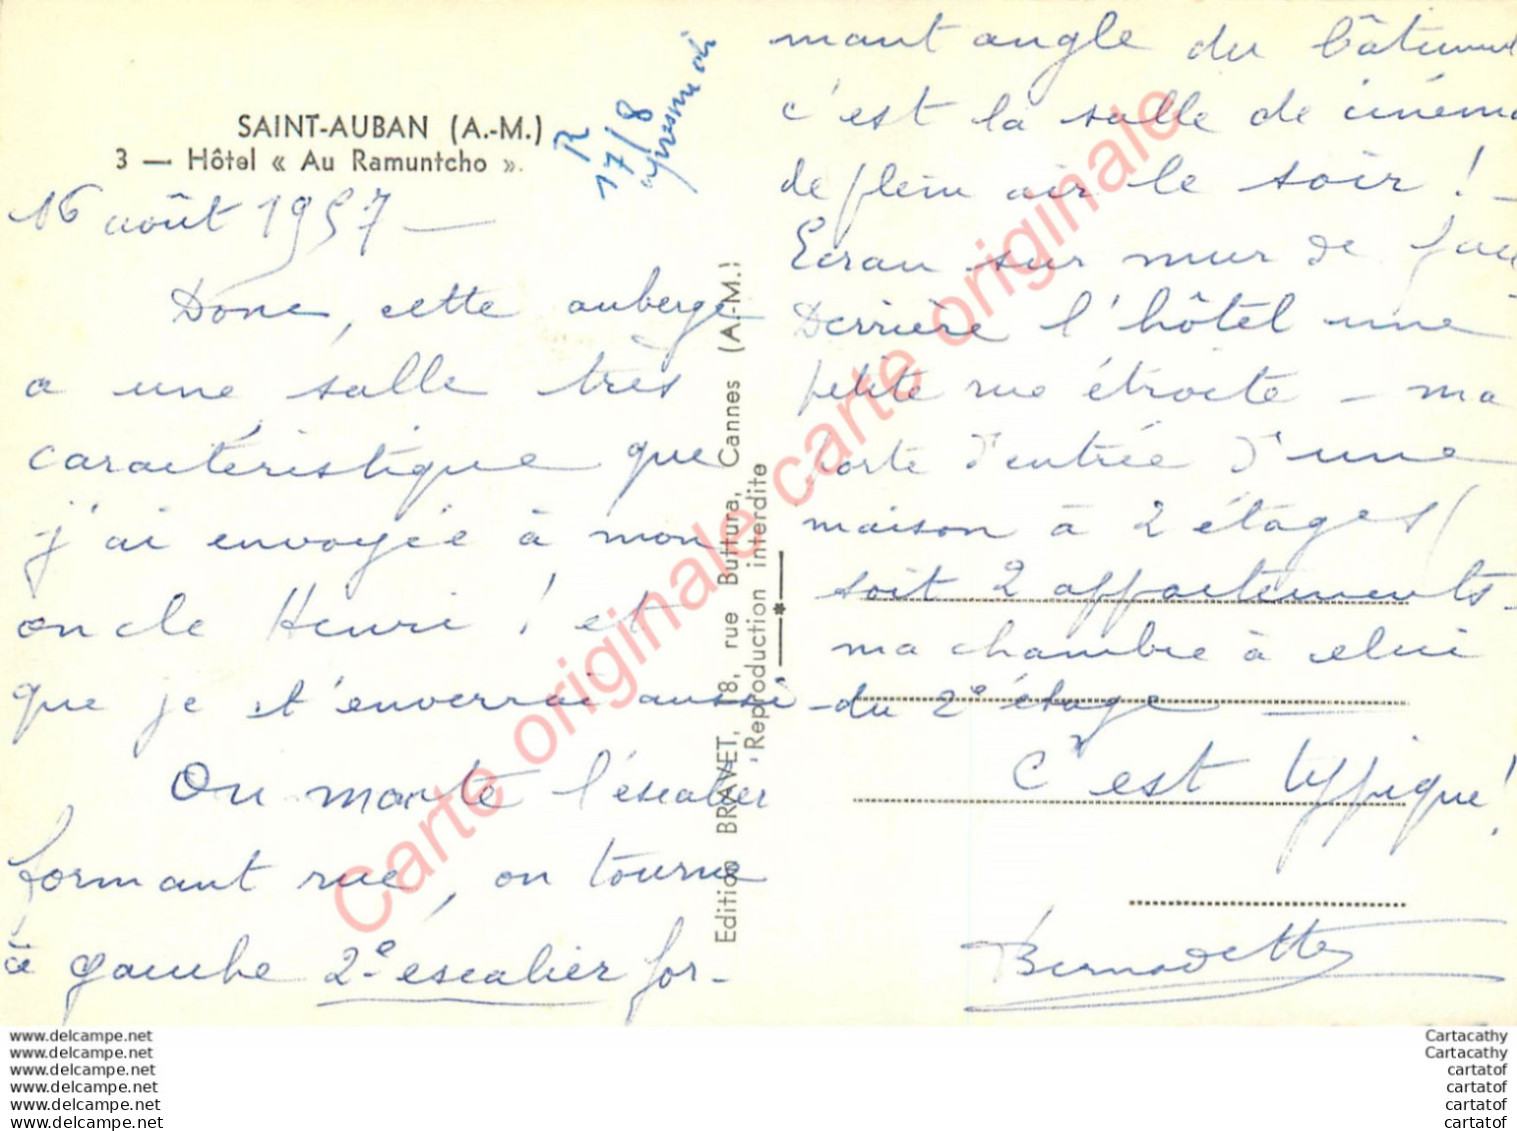 SAINT-AUBAN (A.-M.)
3 — Hôtel « Au Ramuntcho ».
R
17/8
après midi
16 août 1957 —
Donc, cette auberge
a une salle très
caractéristique que
j'ai envoyée à mon
oncle Henri ! et
que je t'enverrai aussi -
On monte l'escalier
formant rue, on tourne
à gauche 2e escalier for-
Edition BRAVET, 18, rue Buttura, Cannes (A.-M.)
Reproduction interdite
mant angle du bâtiment
c'est la salle de cinéma
de plein air le soir ! -
Ecran sur mur de face
Derrière l'hôtel une
petite rue étroite - ma
porte d'entrée d'une
maison à 2 étages (
soit 2 appartements -
ma chambre à celui
du 2e étage —
C'est typique !
Bernadette
Carte originale carte originale
www.delcampe.net
www.delcampe.net
www.delcampe.net
www.delcampe.net
www.delcampe.net
www.delcampe.net
Cartacathy
Cartacathy
cartatof
cartatof
cartatof
cartatof